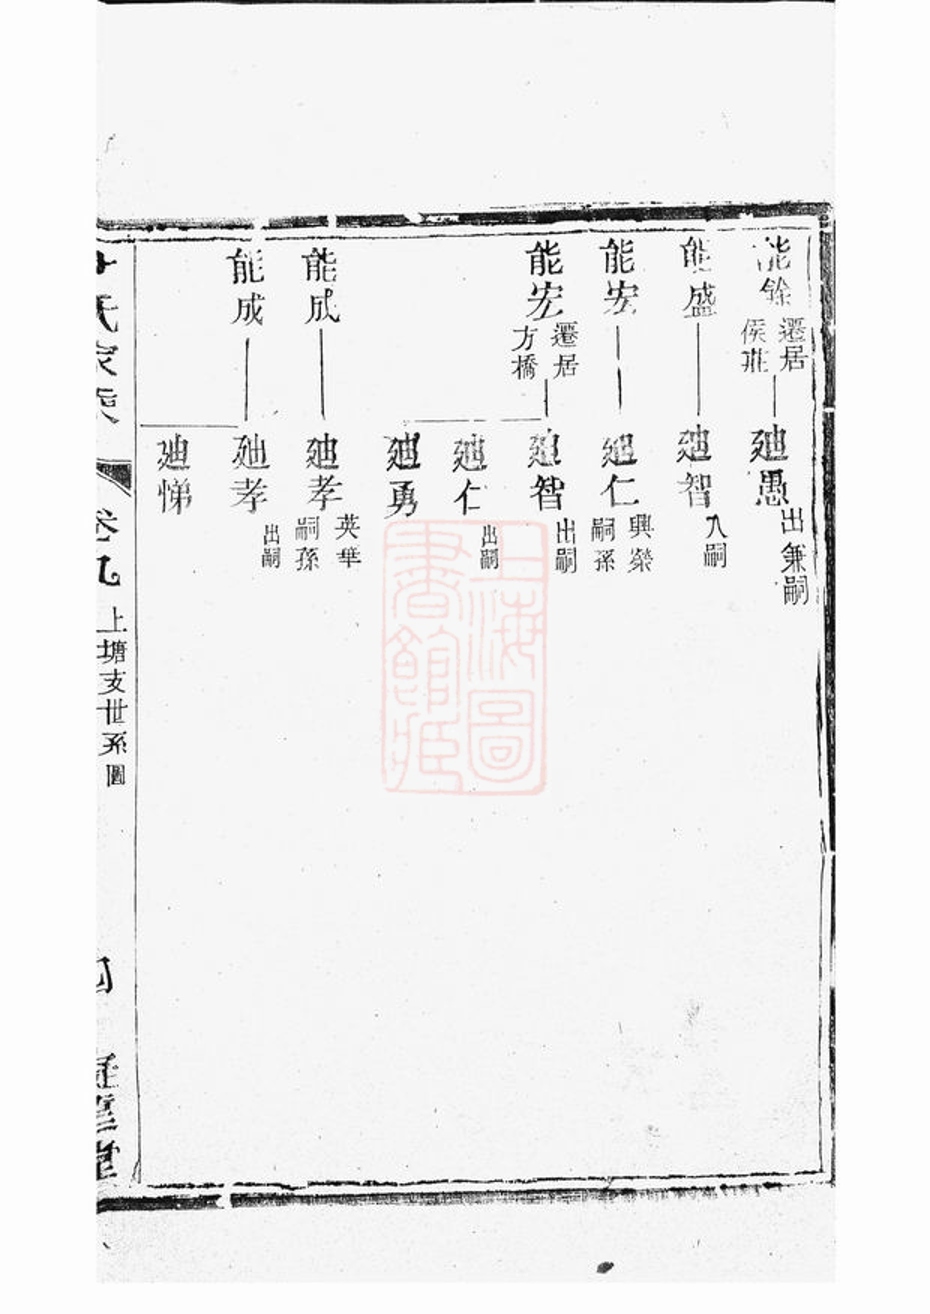 能銓遷居侯莊
廸愚出兼嗣
能盛
廸智入嗣
能宏
廸仁興榮嗣孫
能宏遷居方橋
廸智出嗣
廸仁出嗣
廸勇
能成
廸孝英華嗣孫
能成
廸孝出嗣
廸悌
氏家乘
卷九
上塘支世系圖
四
堂
上海圖書館藏